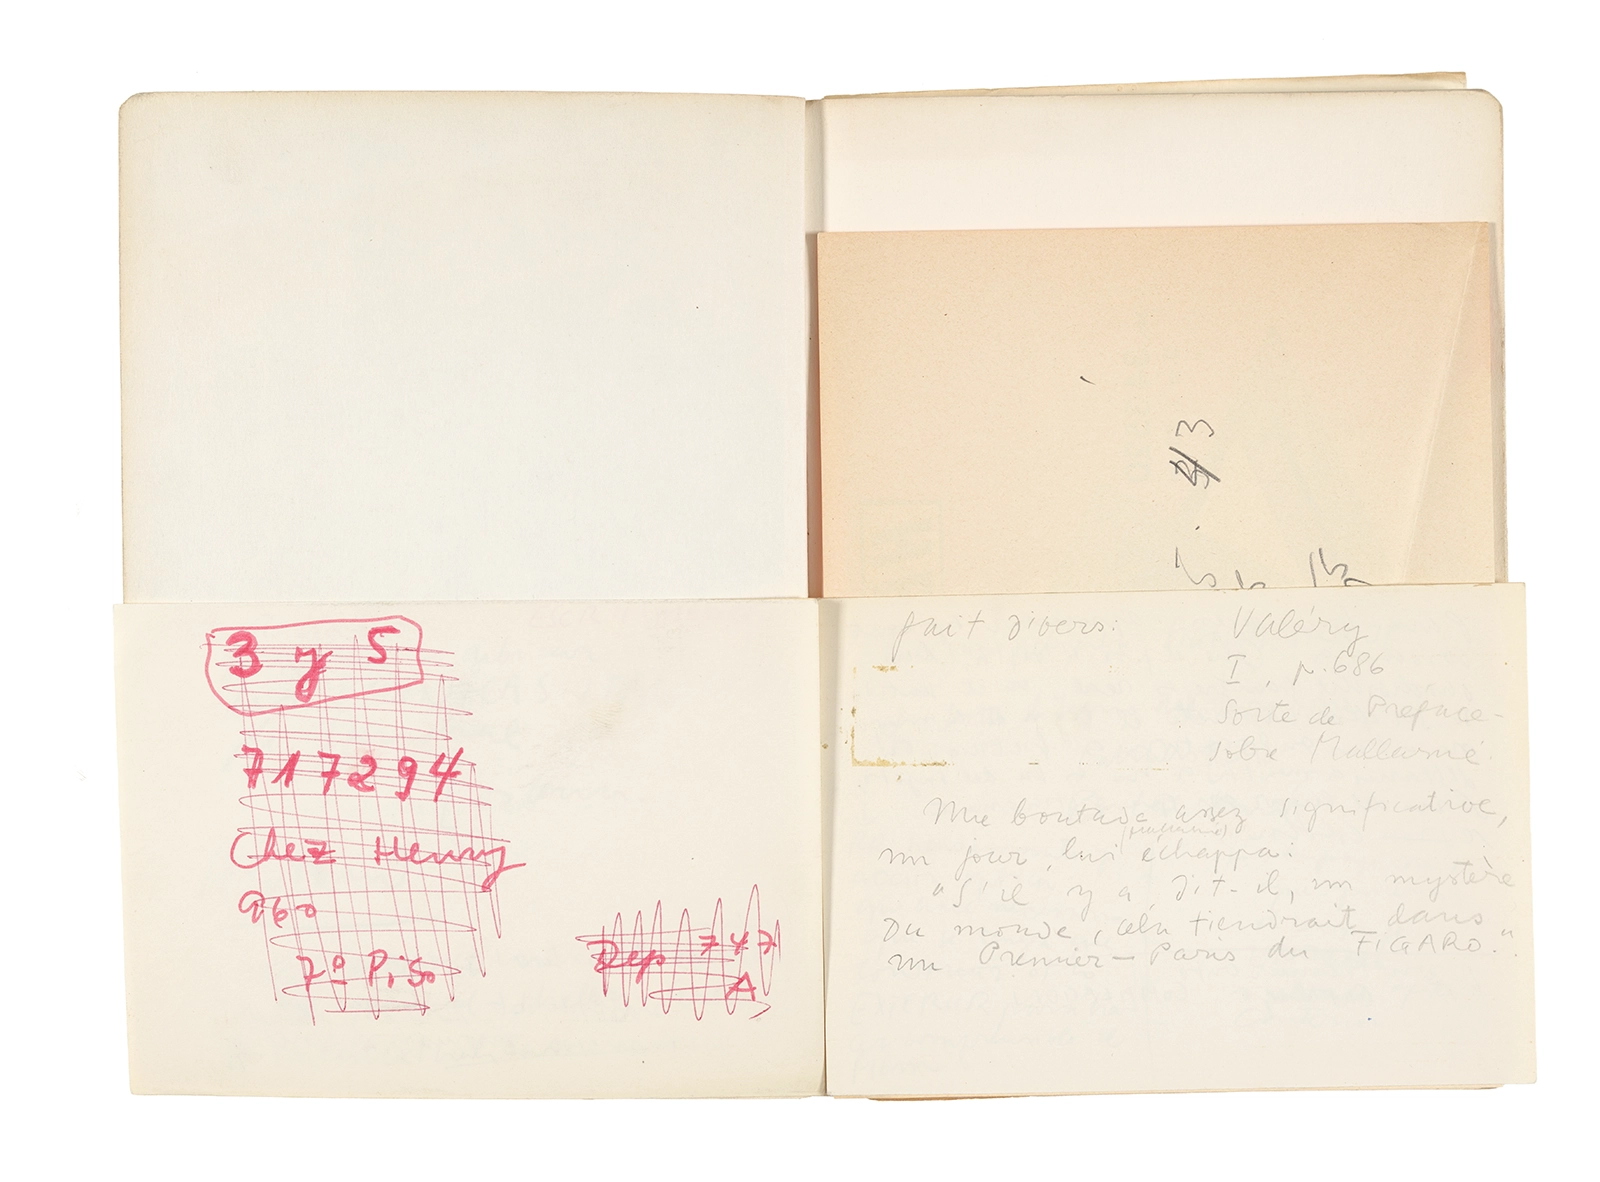 3 y 5
717294
Chez Henry
960
7º Piso
Dep 747
A
3
fait divers:
Valéry
I, p. 686
Sorte de Préface-
sobre Mallarmé.
Une boutade assez significative,
(Mallarmé)
un jour, lui échappa:
"S'il y a, dit-il, un mystère
Du monde, cela tiendrait dans
un Premier-Paris du FIGARO."